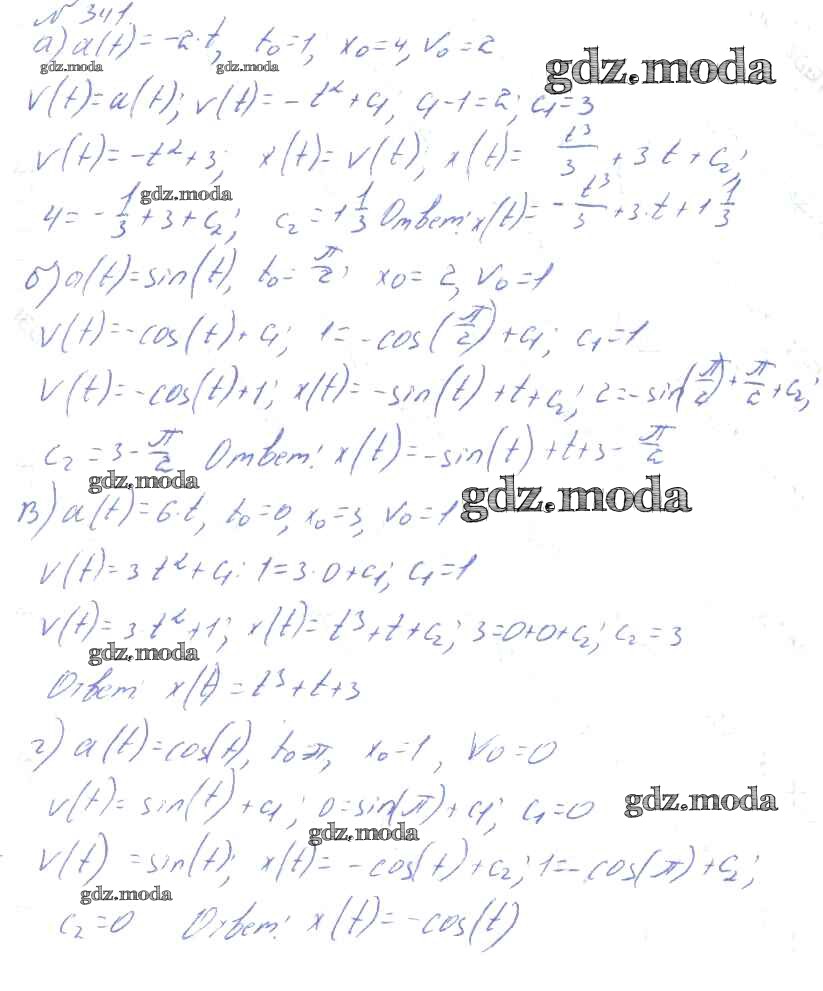 № 341.
а) a(t) = -2·t, t₀=1, x₀=4, v₀=2
gdz.moda gdz.moda gdz.moda
v(t)=a(t); v(t)= -t²+c₁; c₁-1=2; c₁=3
v(t)=-t²+3; x(t)=v(t), x(t)= t³/3 + 3t + c₂;
gdz.moda
4= -1/3+3+c₂; c₂=1 1/3 Ответ: x(t)= -t³/3+3·t+1 1/3
б) a(t)=sin(t), t₀=π/2; x₀=2, v₀=1
v(t)=-cos(t)+c₁; 1=-cos(π/2)+c₁; c₁=1
v(t)=-cos(t)+1; x(t)=-sin(t)+t+c₂; 2=-sin(π/2)+π/2+c₂;
c₂=3-π/2 Ответ: x(t)=-sin(t)+t+3-π/2
gdz.moda gdz.moda
в) a(t)=6·t, t₀=0, x₀=3, v₀=1
v(t)=3t²+c₁: 1=3·0+c₁; c₁=1
v(t)=3·t²+1; x(t)=t³+t+c₂; 3=0+0+c₂; c₂=3
gdz.moda
Ответ: x(t)=t³+t+3
г) a(t)=cos(t), t₀=π, x₀=1, v₀=0
v(t)=sin(t)+c₁; 0=sin(π)+c₁; c₁=0
gdz.moda gdz.moda
v(t)=sin(t); x(t)=-cos(t)+c₂; 1=-cos(π)+c₂;
gdz.moda
c₂=0 Ответ: x(t)=-cos(t)